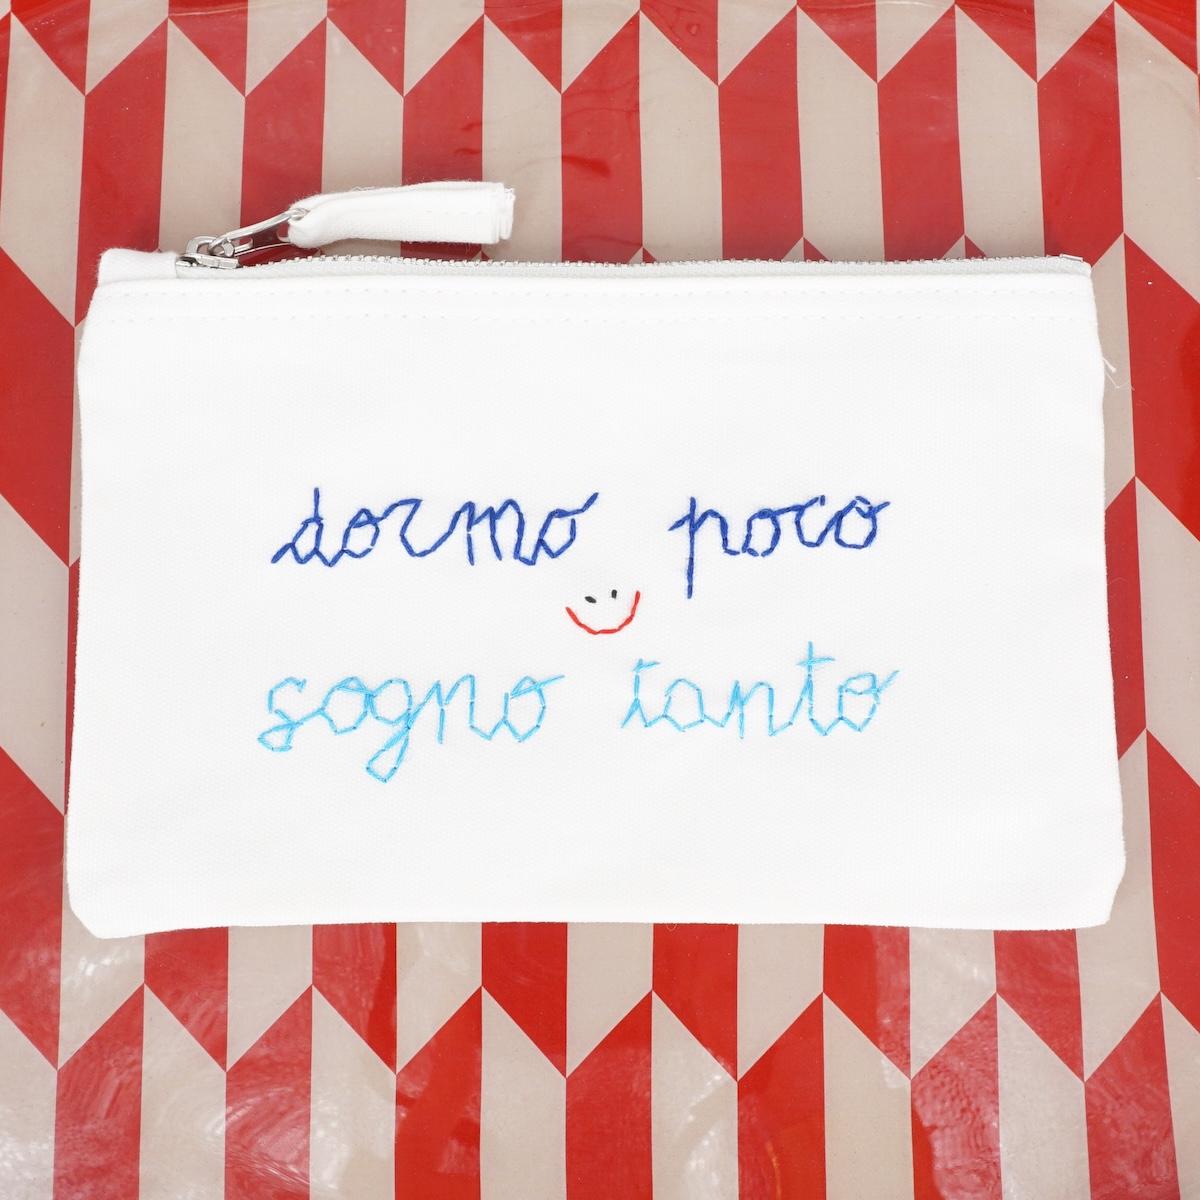 dormo poco
sogno tanto